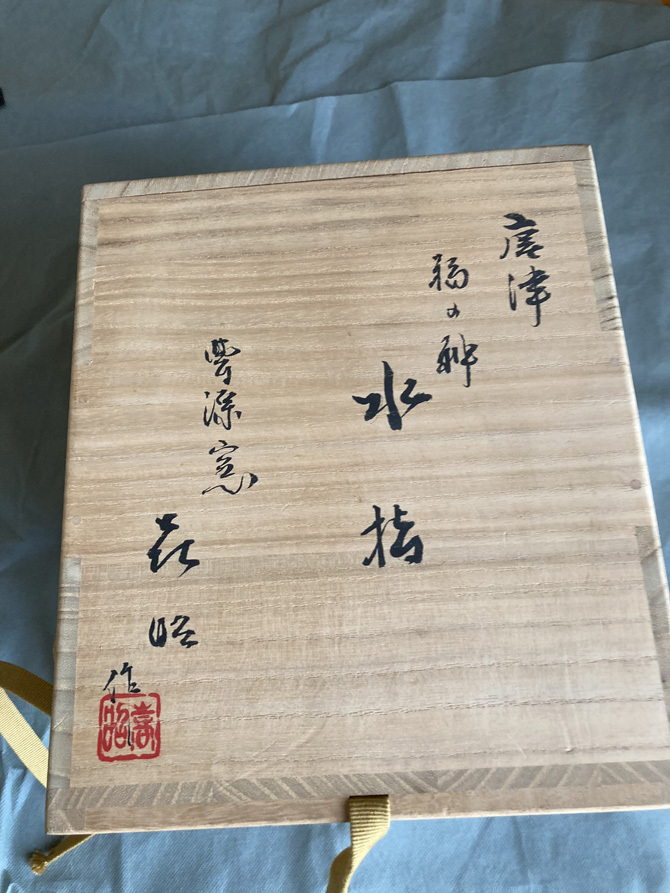 唐津
福の神
水指
豊源窯
喜昭
作
喜昭